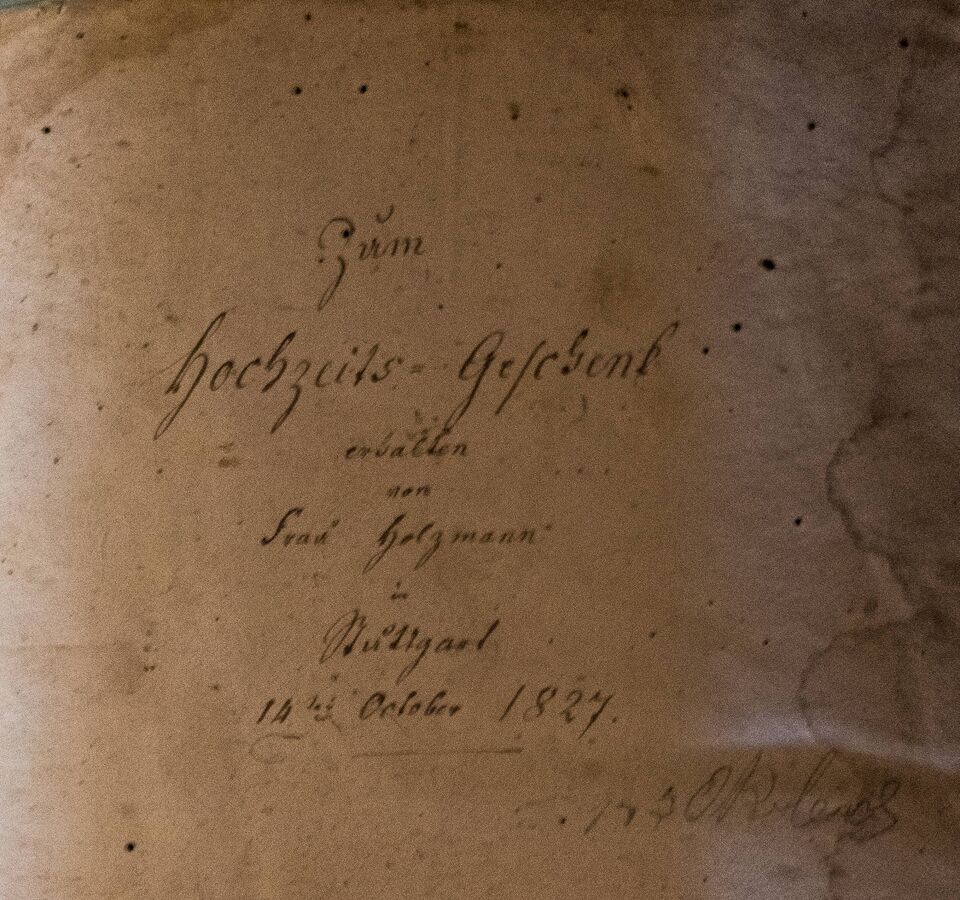 Zum
Hochzeits-Geschenk
erhalten
von
Frau Holzmann
in
Stuttgart
14ten October 1827.